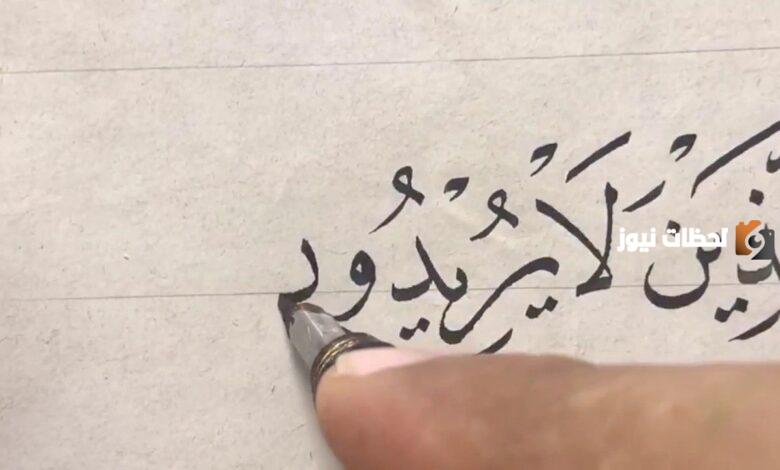 ذِّيْنَ لَا يُرِيْدُور
لحظات نيوز